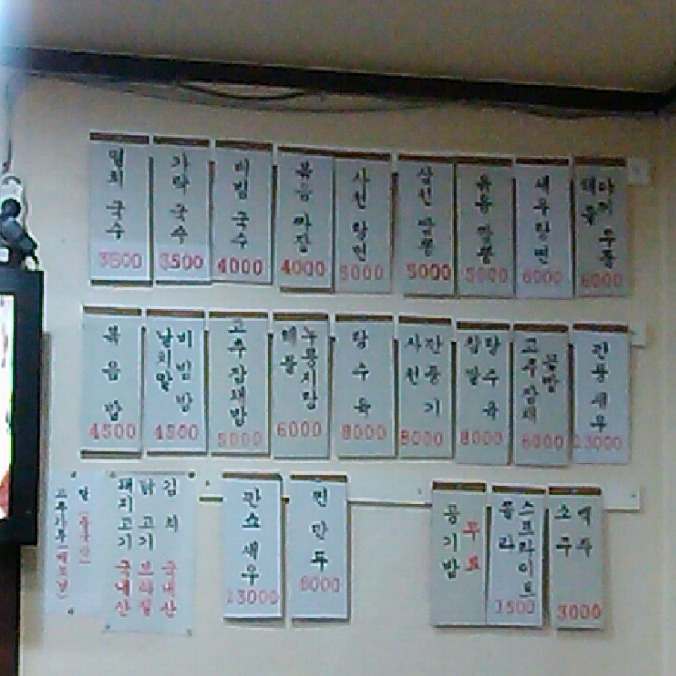 멸치 국수
3500
가락 국수
3500
비빔 국수
4000
볶음 짜장
4000
사천 탕면
5000
삼선 짬뽕
5000
볶음 짬뽕
5000
새우 탕면
6000
해물
우동
6000
볶음밥
4500
날치알
비빔밥
4500
고추잡채밥
5000
해물
누룽지탕
6000
탕수육
8000
사천
깐풍기
8000
찹쌀
탕수육
8000
고추잡채
꽃빵
8000
깐풍새우
13000
쌀
고추가루
돼지고기 국내산
닭고기 브라질
김치 국내산
깐쇼새우
13000
찐만두
공기밥
무료
콜라
스프라이트
1500
소주
맥주
3000